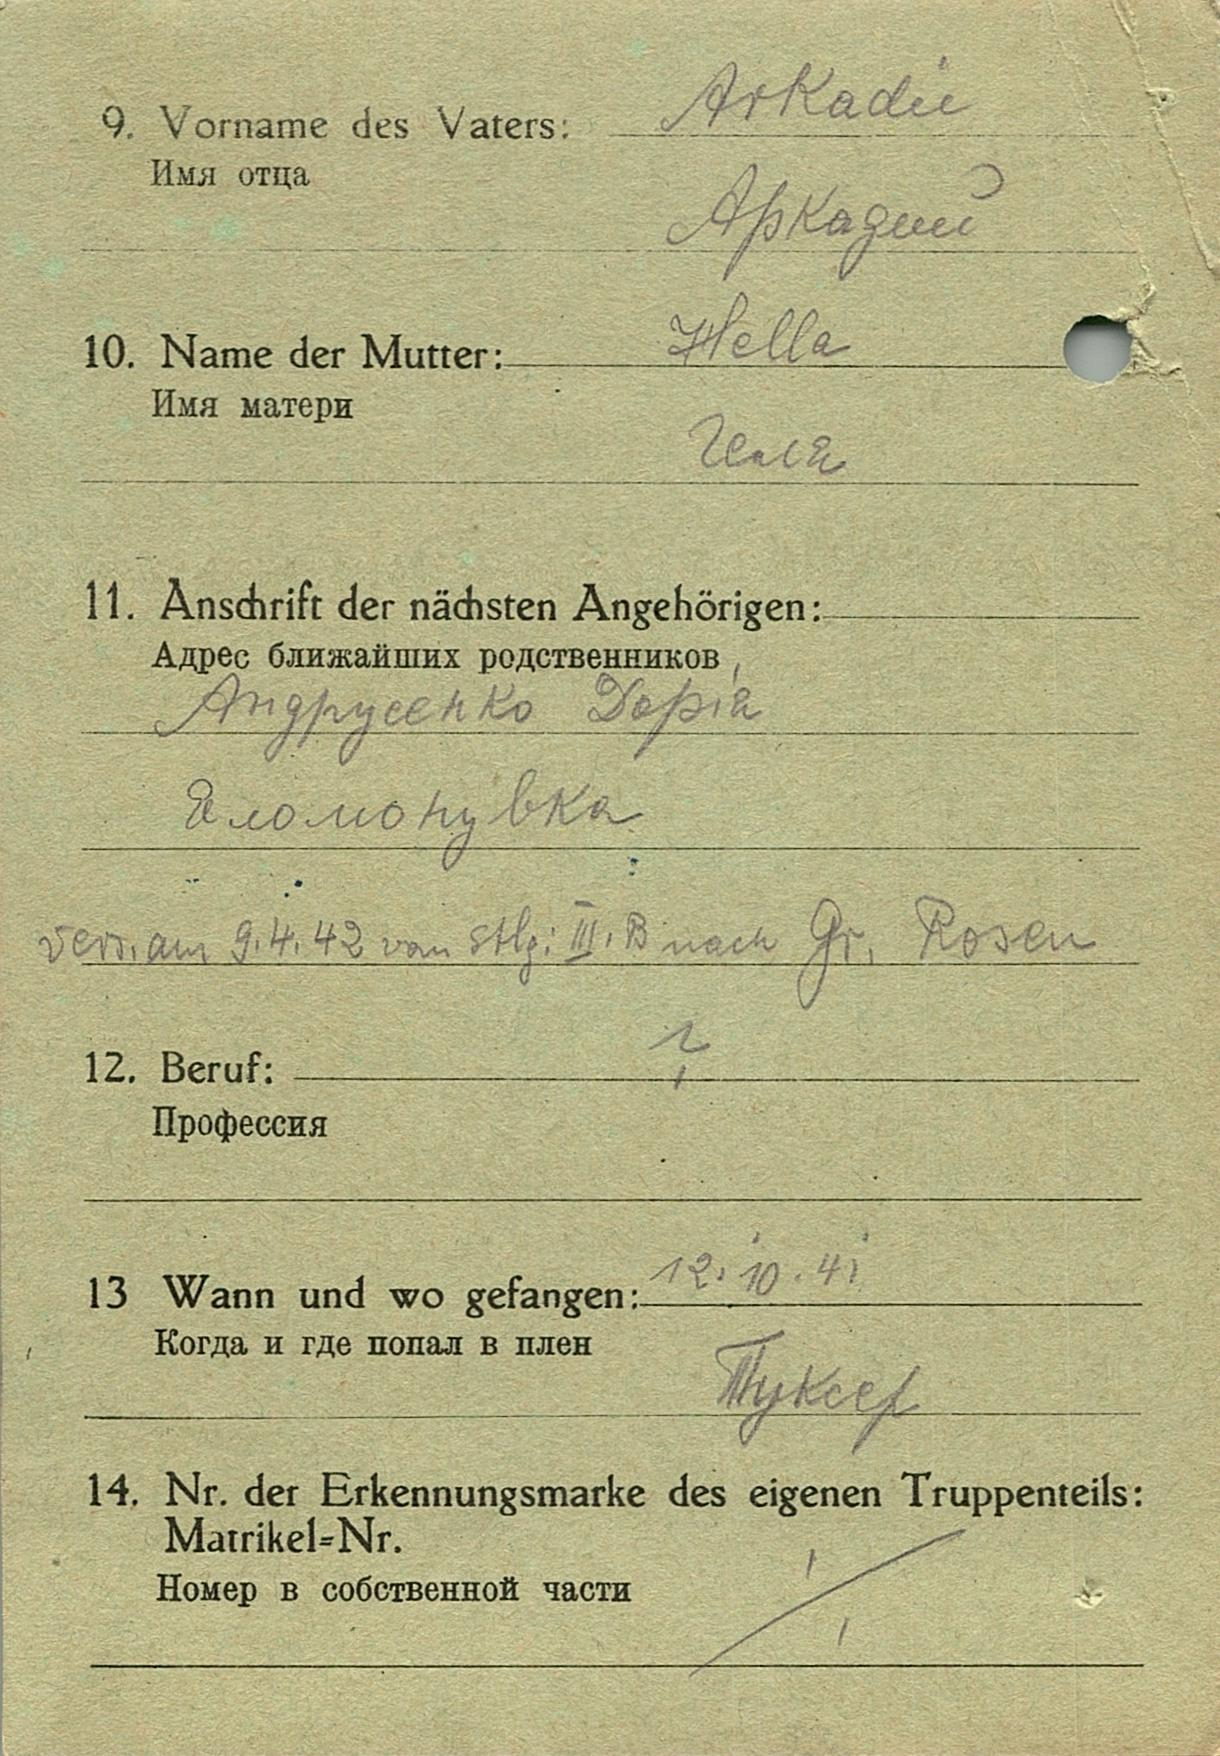 9. Vorname des Vaters: Arkadii
Имя отца
Аркадий
10. Name der Mutter: Hella
Имя матери
Геля
11. Anschrift der nächsten Angehörigen:
Адрес ближайших родственников
Андрусенко Дарiя
вers. am 9.4.42 von Stlg: III. B nach Gr. Rosen
12. Beruf: ?
Профессия
13 Wann und wo gefangen: 12.10.41
Когда и где попал в плен
14. Nr. der Erkennungsmarke des eigenen Truppenteils:
Matrikel=Nr.
Номер в собственной части